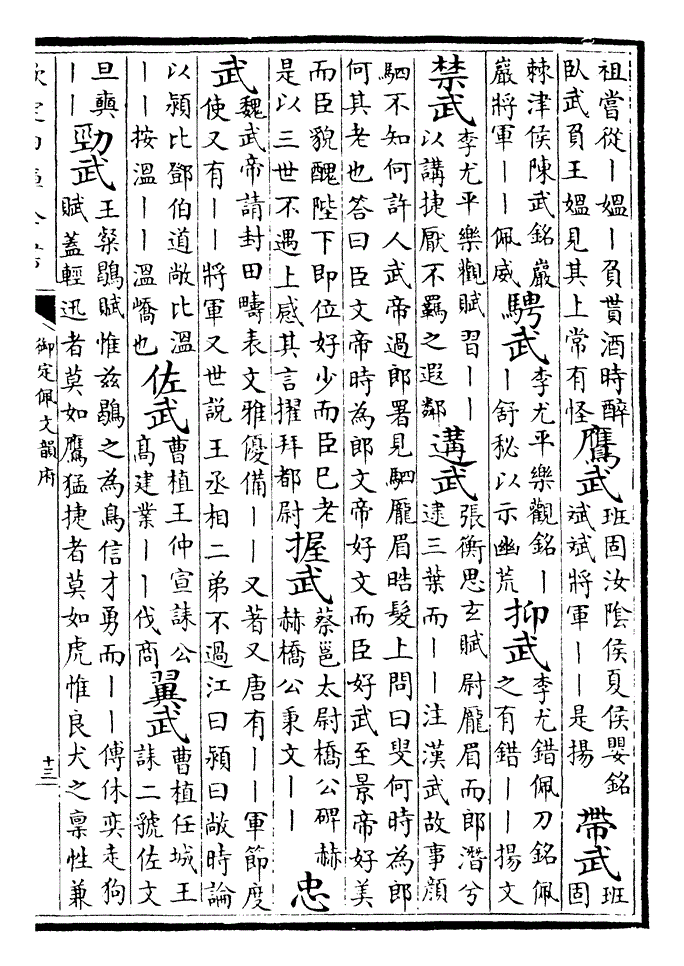 祖當從｜媼｜負貰酒時醉
臥武負王媼見其上常有怪
鷹武
班固汝陰侯夏侯嬰銘
斌斌將軍｜｜是揚
帶武
班
固
棘津侯陳武銘嚴
巖將軍｜｜佩威
騁武
李尤平樂觀銘｜
｜舒秘以示幽荒
抑武
李尤錯佩刀銘佩
之有錯｜｜揚文
禁武
李尤平樂觀賦習｜｜
以講捷厭不羈之遐鄰
遘武
張衡思玄賦尉厖眉而郎潛兮
逮三葉而｜｜注漢武故事顏
駟不知何許人武帝過郎署見駟厖眉皓髮上問曰叟何時為郎
何其老也答曰臣文帝時為郎文帝好文而臣好武至景帝好美
而臣貌醜陛下即位好少而臣已老
是以三世不遇上感其言擢拜都尉
握武
蔡邕太尉橋公碑赫
赫橋公秉文｜｜
忠
武
魏武帝請封田疇表文雅優備｜｜又著又唐有｜｜軍節度
使又有｜｜將軍又世説王丞相二弟不過江曰潁曰敞時論
以潁比鄧伯道敞比溫
｜｜按溫｜｜溫嶠也
佐武
曹植王仲宣誄公
高建業｜｜伐商
翼武
曹植任城王
誄二虢佐文
旦奭
｜｜
勁武
王粲鶡賦惟兹鶡之為鳥信才勇而｜｜傅休奕走狗
賦蓋輕迅者莫如鷹猛捷者莫如虎惟良犬之稟性兼
御定佩文韻府
十三